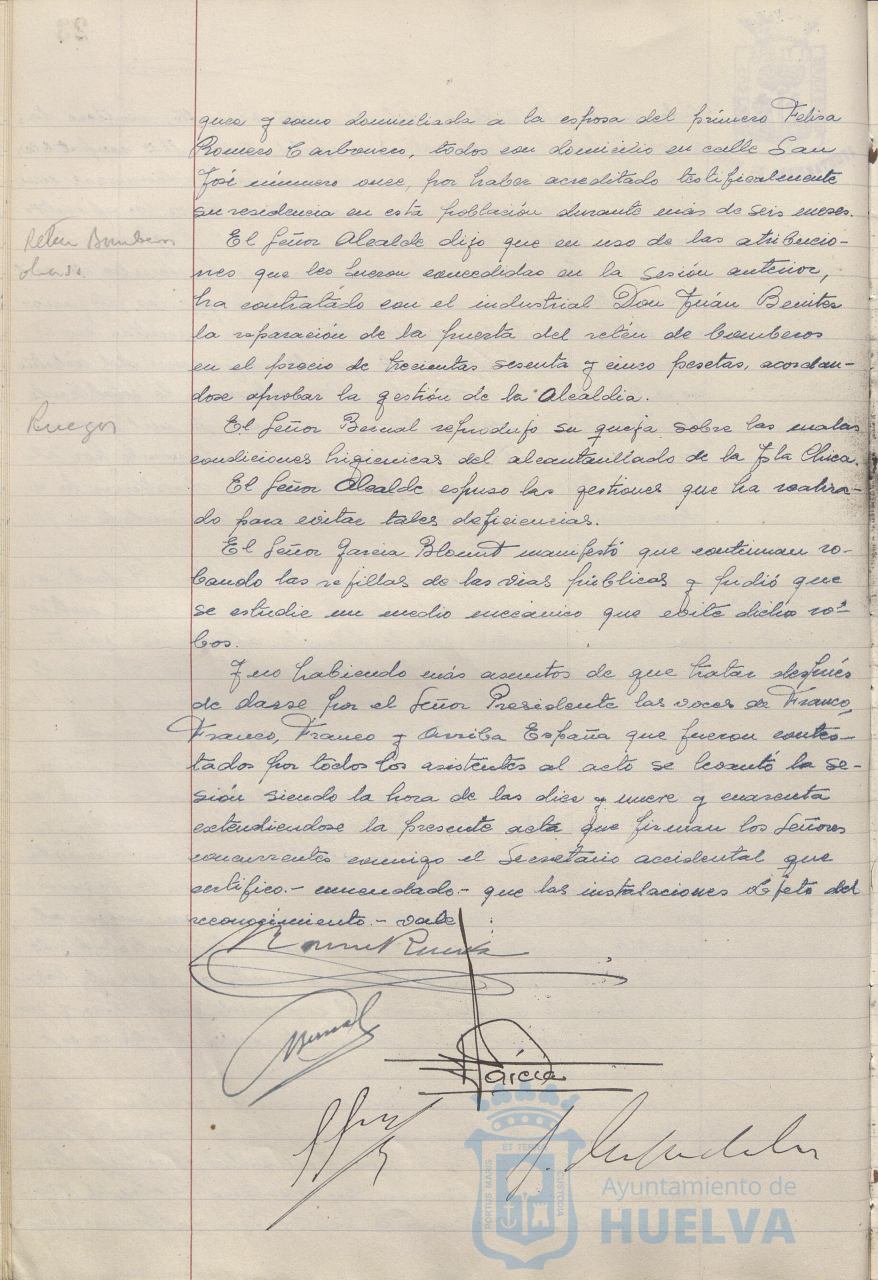 quez y como domiciliada a la esposa del primero Felisa
Romero Carbonero, todos con domicilio en calle San
José número once, por haber acreditado testificalmente
su residencia en esta población durante más de seis meses.
Retén Bomberos
obras.
El Señor Alcalde dijo que en uso de las atribucio-
nes que les fueron concedidas en la sesión anterior,
ha contratado con el industrial Don Juán Benites
la reparación de la puerta del retén de bomberos
en el precio de trecientas sesenta y cinco pesetas, acordan-
dose aprobar la gestión de la Alcaldia.
Ruegos
El Señor Bernal reprodujo su queja sobre las malas
condiciones higienicas del alcantarillado de la Isla Chica.
El Señor Alcalde espuso las gestiones que ha realiza-
do para evitar tales deficiencias.
El Señor Garcia manifestó que continuan ro-
bando las rejillas de las vias públicas y pidió que
se estudie un medio mecánico que evite dichos ro-
bos.
Y no habiendo más asuntos de que tratar después
de darse por el Señor Presidente las voces de Franco,
Franco, Franco y Arriba España que fueron contes-
tados por todos los asistentes al acto se levantó la se-
sión siendo la hora de las diez y nueve y cuarenta
extendiendose la presente acta que firman los Señores
concurrentes conmigo el Secretario accidental que
certifico.- enmendado.- que las instalaciones objeto del
reconocimiento.- vale
Bernal
García
PORTUS MARIS
ET TERRE
CUSTODIA
Ayuntamiento de
HUELVA